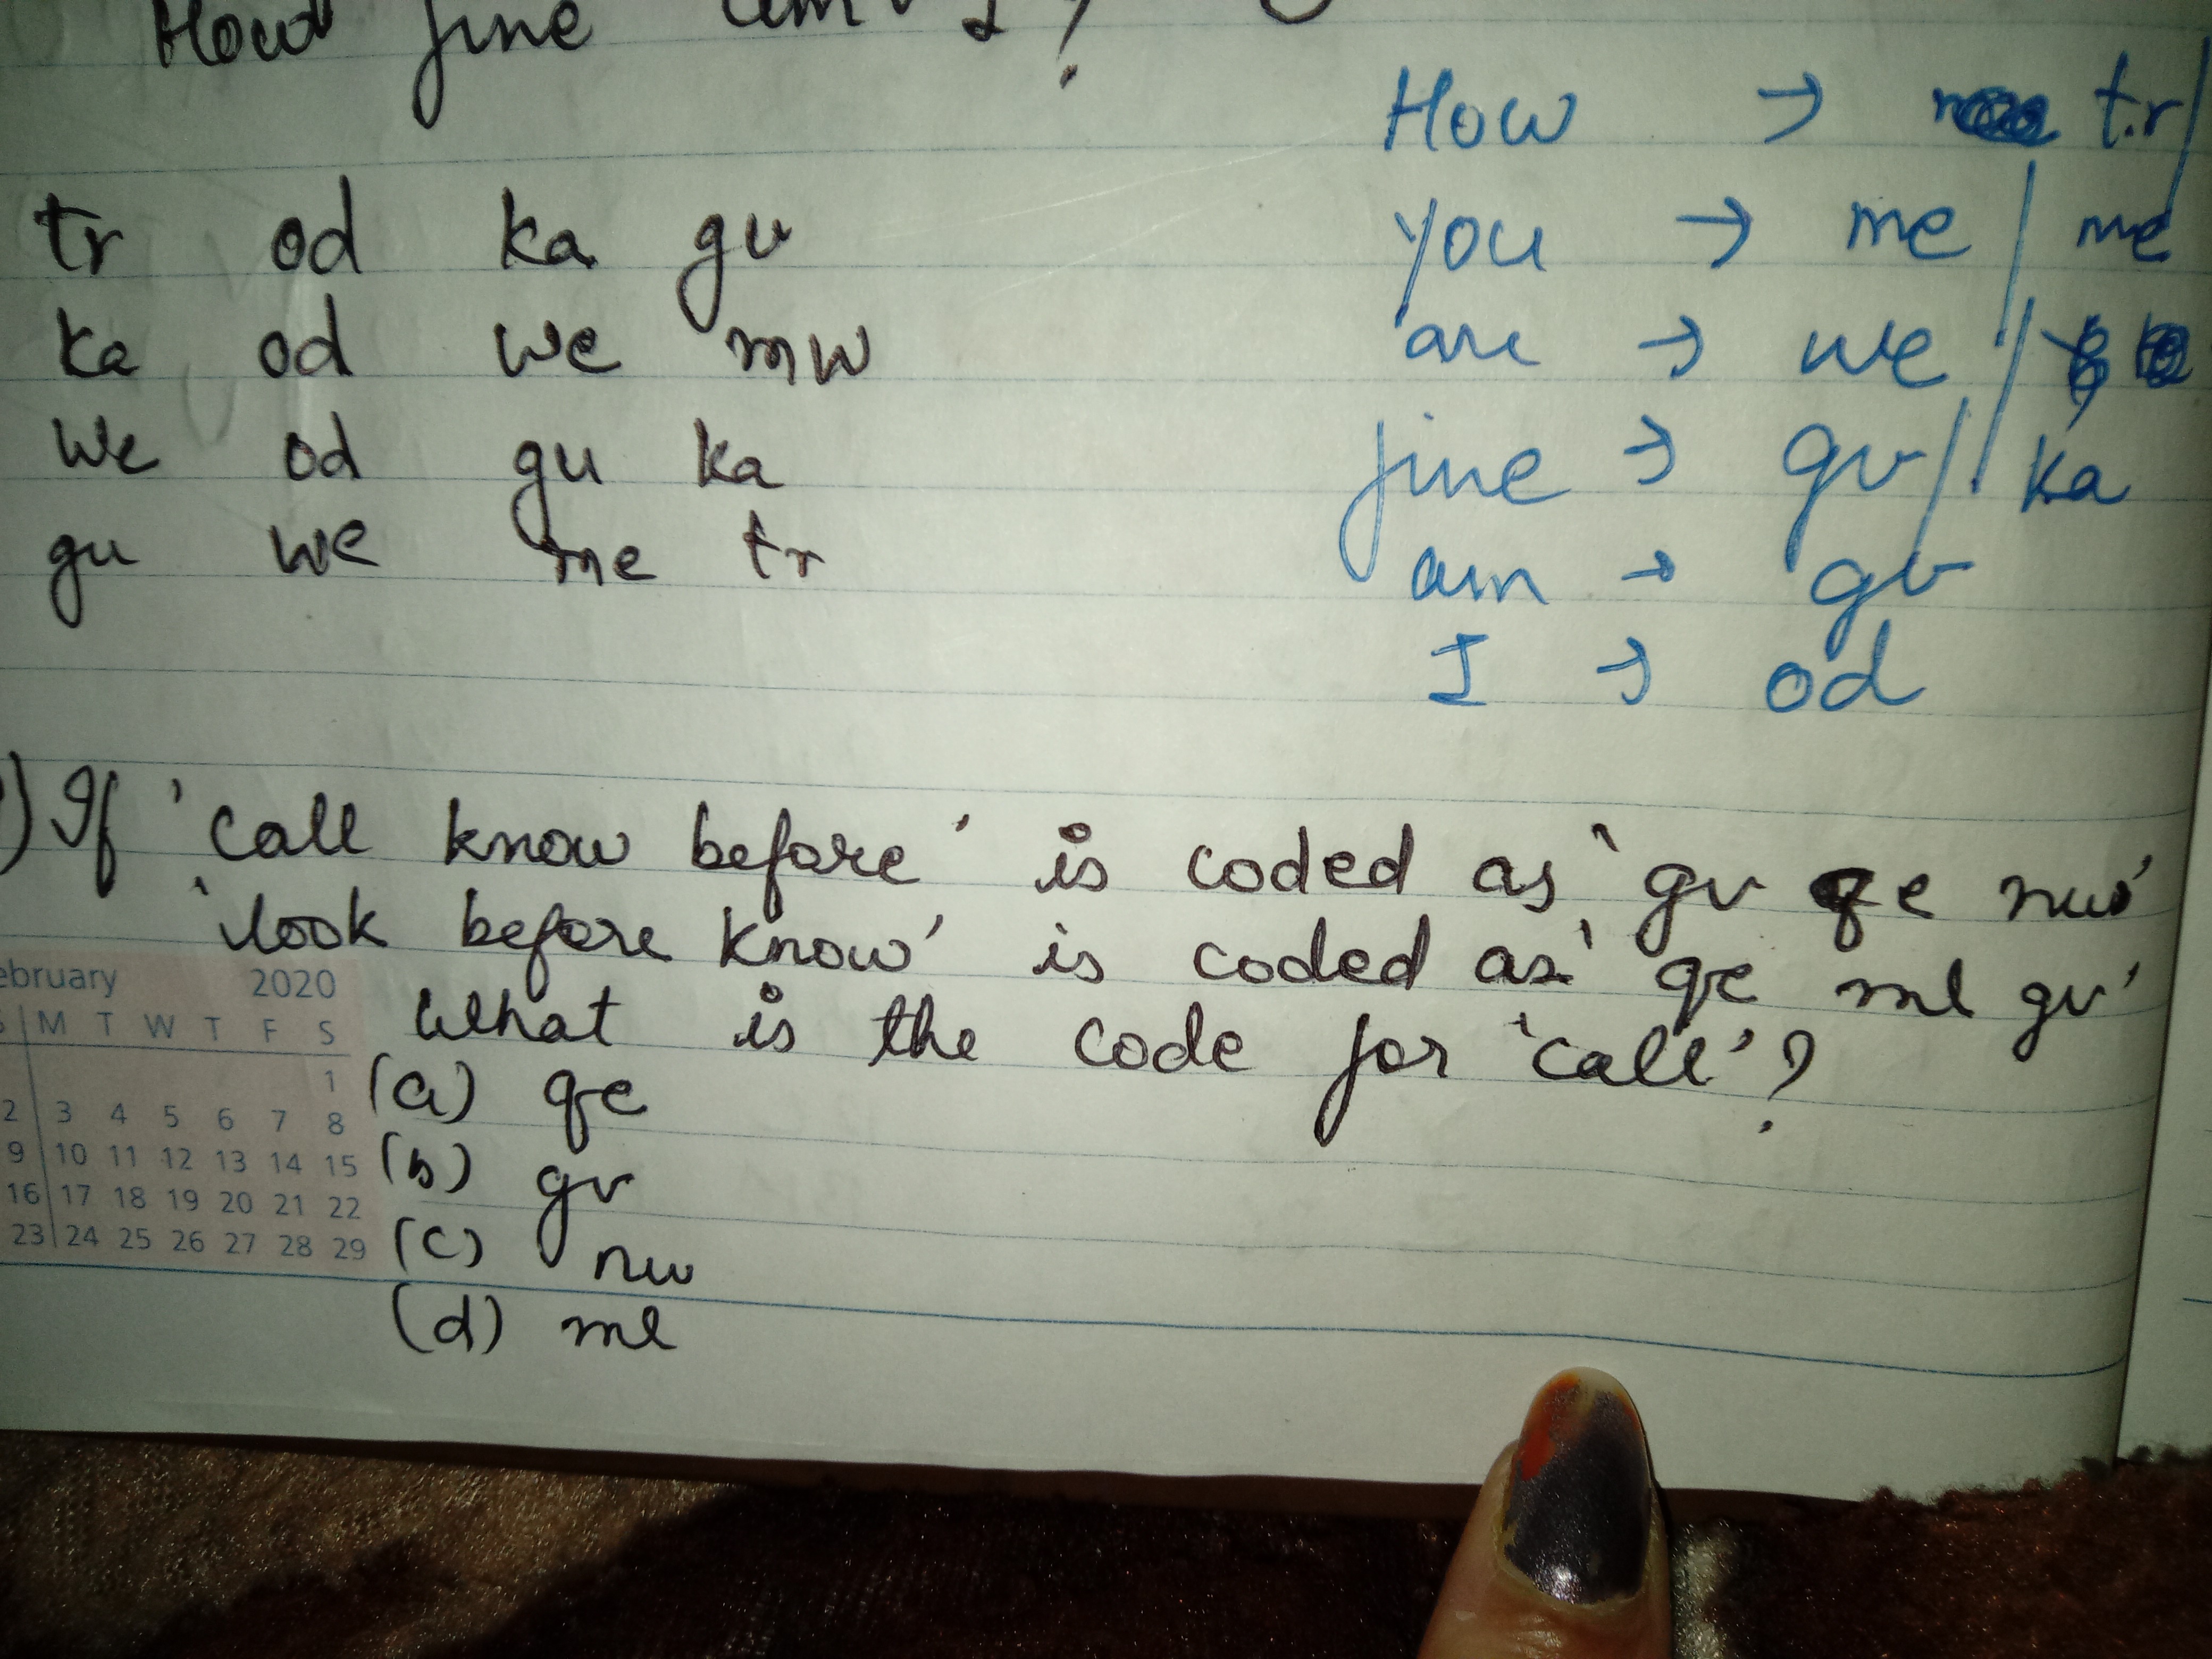 How fine am I ?
tr od ka gv
ka od we mw
we od gu ka
gu we me tr
How → tr
you → me / me
are → we /
fine → gv / ka
am → gv
I → od
) If 'call know before' is coded as 'gv qe nw'
'look before know' is coded as 'qe ml gv'
What is the code for 'call' ?
(a) qe
(b) gv
(c) nw
(d) ml
ebruary 2020
S M T W T F S
1
2 3 4 5 6 7 8
9 10 11 12 13 14 15
16 17 18 19 20 21 22
23 24 25 26 27 28 29